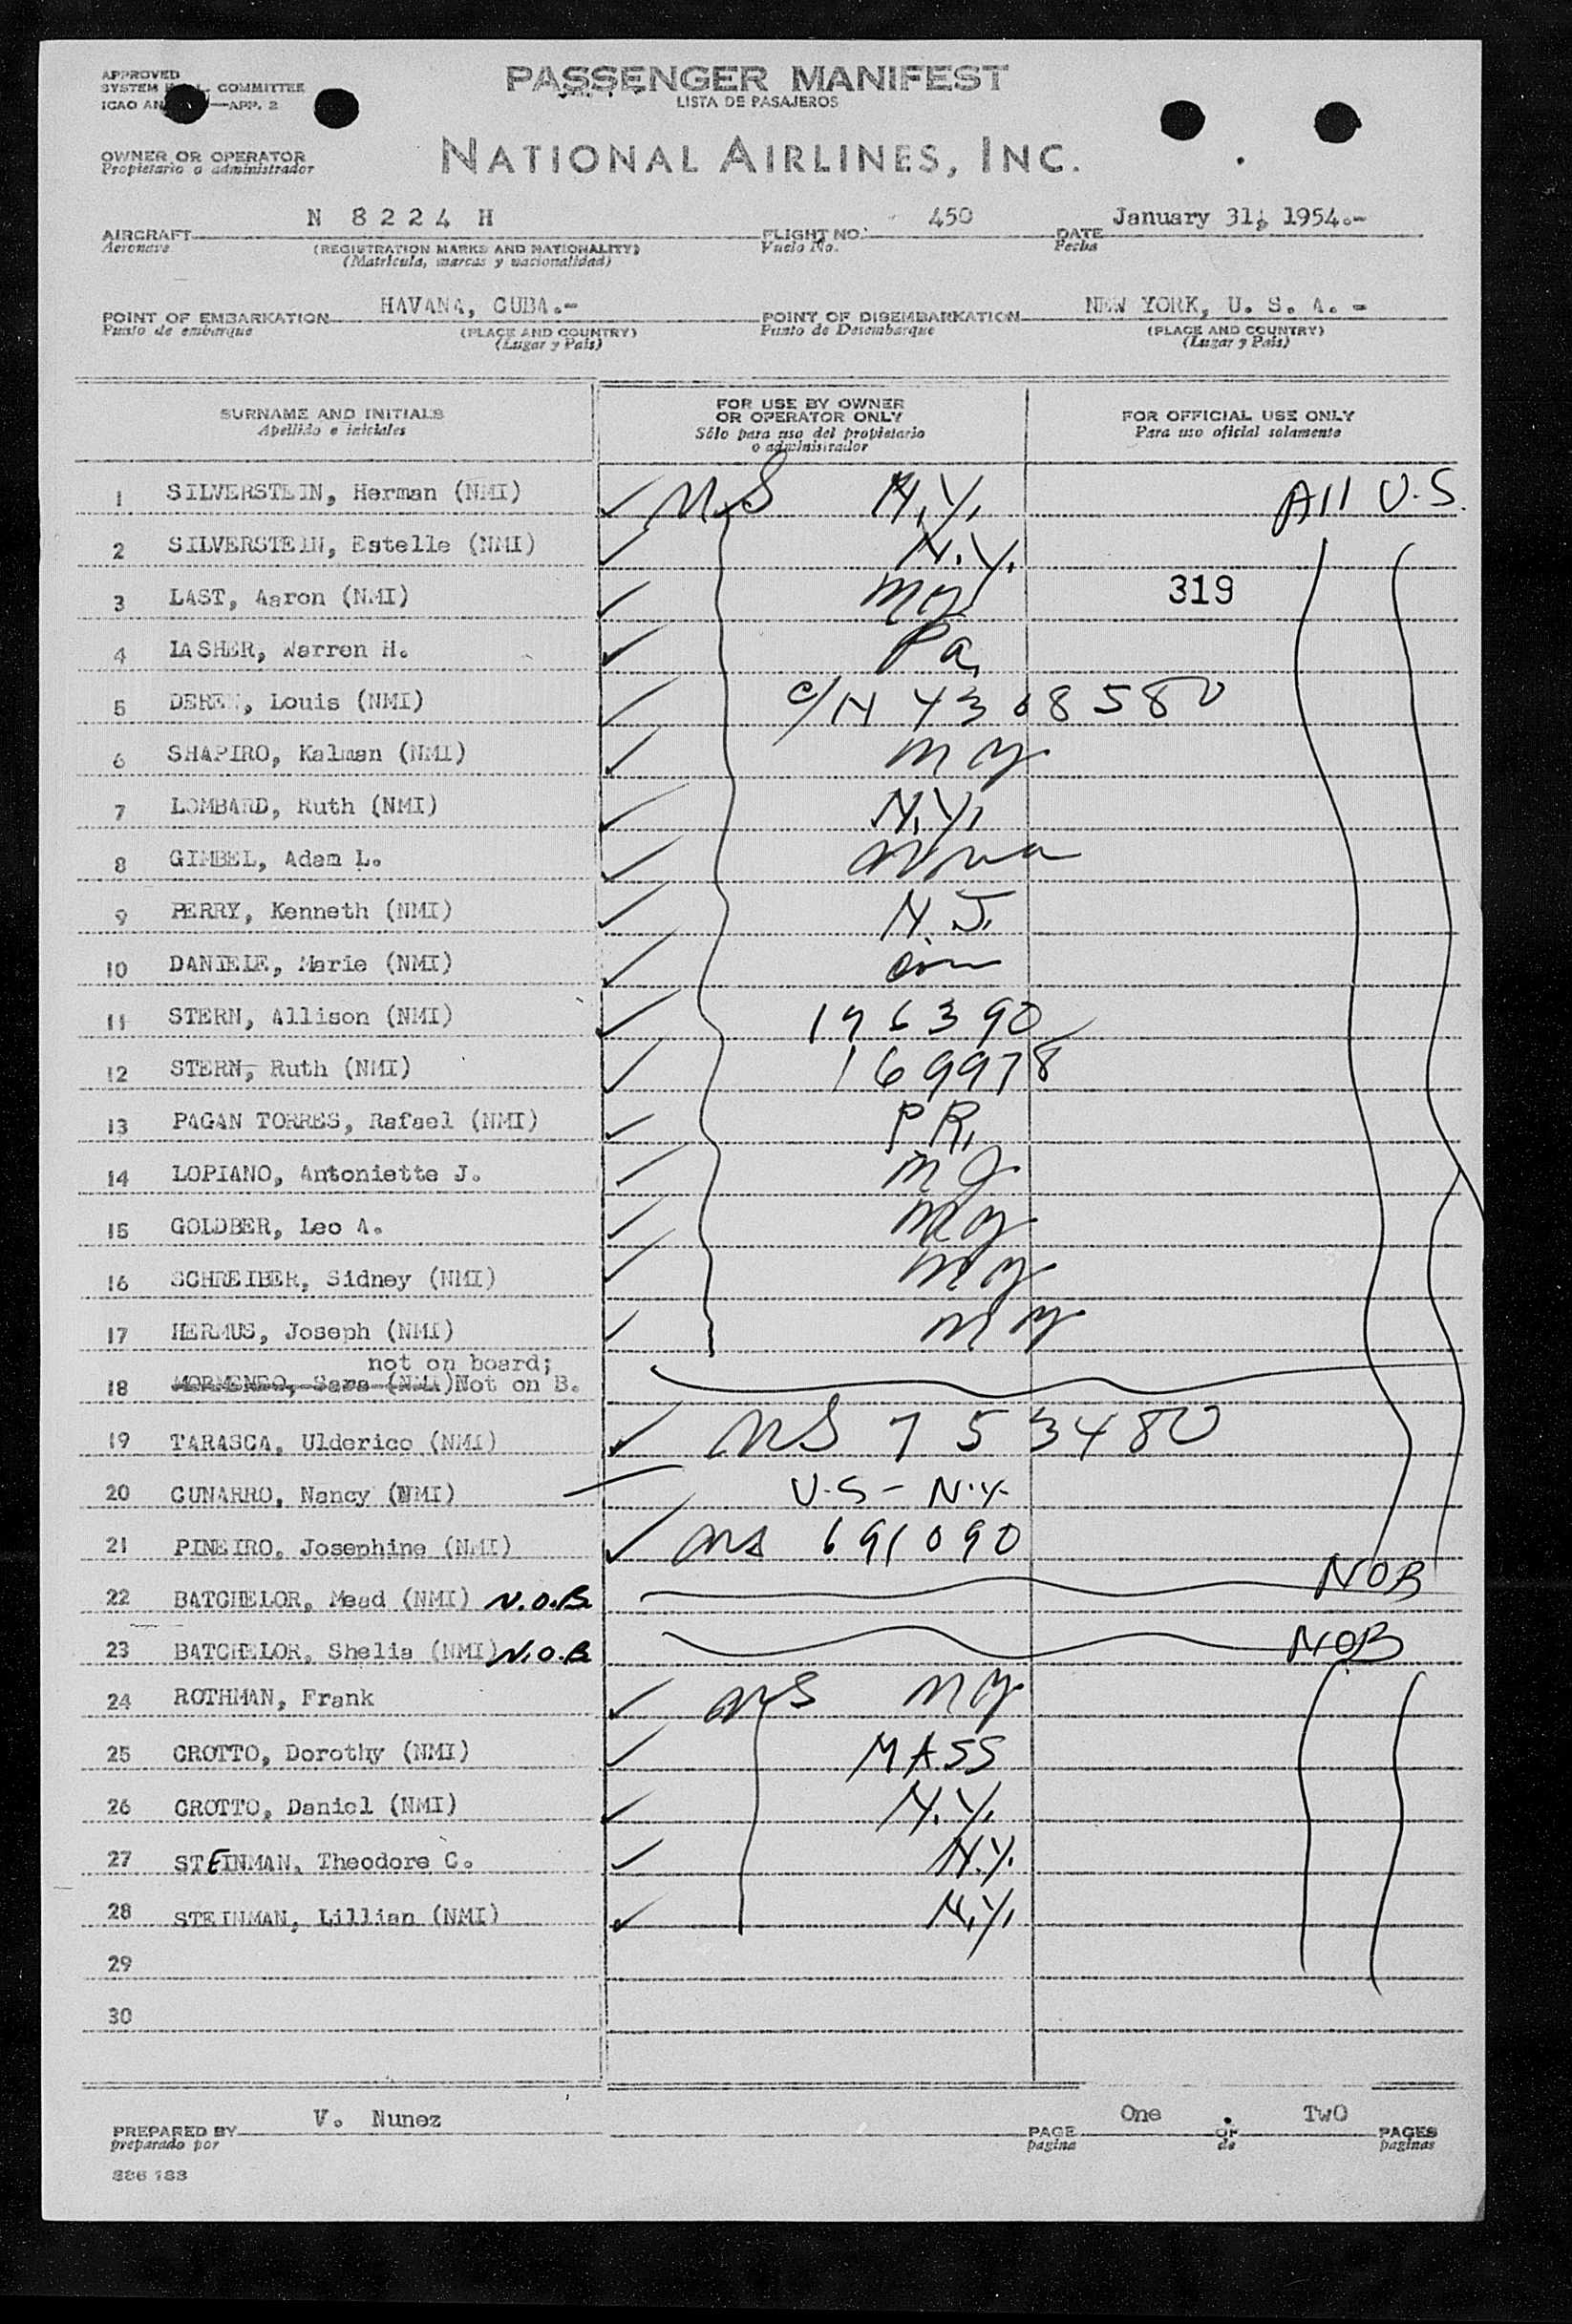 APPROVED
SYSTEM COMMITTEE
ICAO AN —APP. 2
PASSENGER MANIFEST
LISTA DE PASAJEROS
OWNER OR OPERATOR
Propietario o administrador
NATIONAL AIRLINES, INC.
AIRCRAFT N 8 2 2 4 H FLIGHT NO. 450 DATE January 31, 1954.-
Aeronave (REGISTRATION MARKS AND NATIONALITY) Vuelo No. Fecha
(Matricula, marcas y nacionalidad)
POINT OF EMBARKATION HAVANA, CUBA.- POINT OF DISEMBARKATION NEW YORK, U. S. A. -
Punto de embarque (PLACE AND COUNTRY) Punto de Desembarque (PLACE AND COUNTRY)
(Lugar y Pais) (Lugar y Pais)
SURNAME AND INITIALS
Apellido e iniciales
FOR USE BY OWNER
OR OPERATOR ONLY
Sólo para uso del propietario
o administrador
FOR OFFICIAL USE ONLY
Para uso oficial solamente
1 SILVERSTEIN, Herman (NMI) ✓ U.S N.Y. All U.S.
2 SILVERSTEIN, Estelle (NMI) ✓ N.Y.
3 LAST, Aaron (NMI) ✓ NY 319
4 LASHER, Warren H. ✓ Pa.
5 DEREN, Louis (NMI) ✓ C/N 4368580
6 SHAPIRO, Kalman (NMI) ✓ NY
7 LOMBARD, Ruth (NMI) ✓ N.Y.
8 GIMBEL, Adam L. ✓
9 PERRY, Kenneth (NMI) ✓ N.J.
10 DANIELE, Marie (NMI) ✓
11 STERN, Allison (NMI) ✓ 196390
12 STERN, Ruth (NMI) ✓ 169978
13 PAGAN TORRES, Rafael (NMI) ✓ P.R.
14 LOPIANO, Antoniette J. ✓ NJ
15 GOLDBER, Leo A. ✓ NY
16 SCHREIBER, Sidney (NMI) ✓ NY
17 HERMUS, Joseph (NMI) ✓ NY
not on board;
18 MORMENEO, Sara (NMI) Not on B.
19 TARASCA, Ulderico (NMI) ✓ US 753480
20 CUNARRO, Nancy (NMI) U.S - N.Y.
21 PINEIRO, Josephine (NMI) ✓ US 691090
22 BATCHELOR, Mead (NMI) N.O.B. NOB
23 BATCHELOR, Shelia (NMI) N.O.B NOB
24 ROTHMAN, Frank ✓ US NY
25 CROTTO, Dorothy (NMI) ✓ MASS
26 CROTTO, Daniel (NMI) ✓ N.Y.
27 STEINMAN, Theodore C. ✓ N.Y.
28 STEINMAN, Lillian (NMI) ✓ N.Y.
29
30
PREPARED BY V. Nunez PAGE One OF Two PAGES
preparado por pagina de paginas